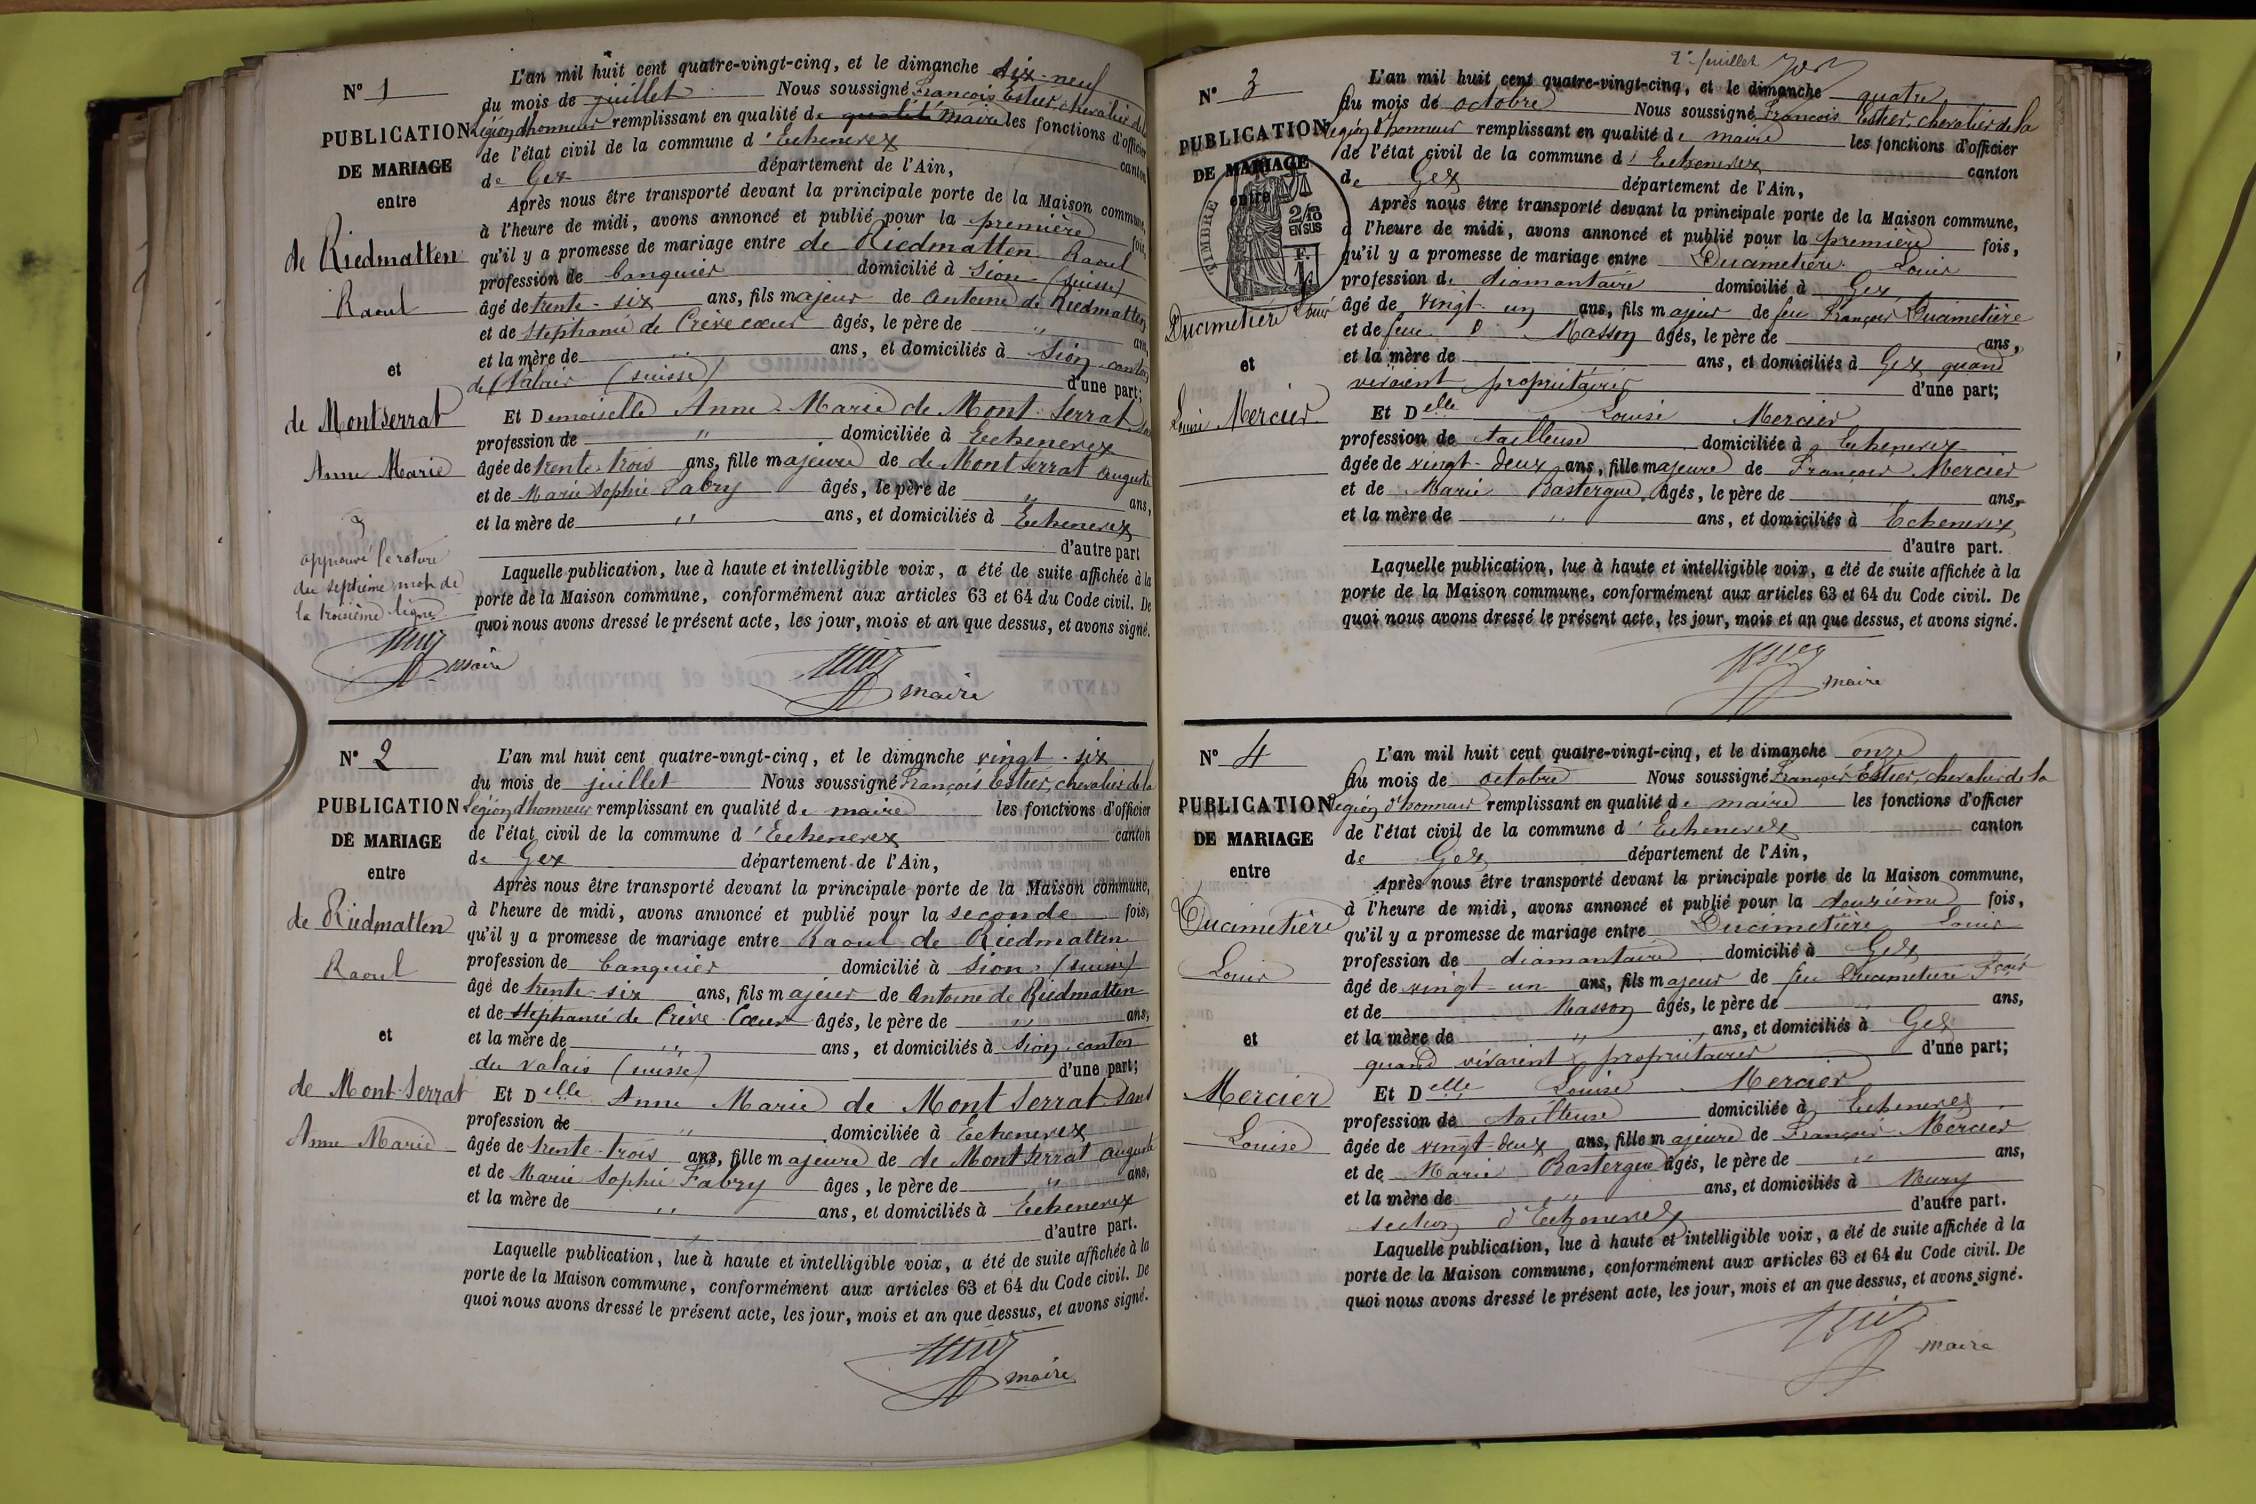 N° 1
PUBLICATION
DE MARIAGE
entre
de Riedmatten
Raoul
et
de Montserrat
Anne Marie
approuvé la rature
du septième mot de
la troisième ligne
maire
L'an mil huit cent quatre-vingt-cinq, et le dimanche dix-neuf
du mois de juillet Nous soussigné François Estier, chevalier de la
Légion d'honneur remplissant en qualité de qualité maire les fonctions d'officier
de l'état civil de la commune d'Echenevex canton
de Gex département de l'Ain,
Après nous être transporté devant la principale porte de la Maison commune,
à l'heure de midi, avons annoncé et publié pour la première fois,
qu'il y a promesse de mariage entre de Riedmatten Raoul
profession de banquier domicilié à Sion (suisse)
âgé de trente-six ans, fils majeur de Antoine de Riedmatten
et de Stéphanie de Crève cœur âgés, le père de " ans,
et la mère de " ans, et domiciliés à Sion canton
de Valais (suisse) d'une part;
Et Demoiselle Anne-Marie de Mont-Serrat sans
profession de " domiciliée à Echenevex
âgée de trente-trois ans, fille majeure de de Mont Serrat auguste
et de Marie Sophie Fabry âgés, le père de " ans,
et la mère de " ans, et domiciliés à Echenevex
d'autre part
Laquelle publication, lue à haute et intelligible voix, a été de suite affichée à la
porte de la Maison commune, conformément aux articles 63 et 64 du Code civil. De
quoi nous avons dressé le présent acte, les jour, mois et an que dessus, et avons signé.
maire
N° 2
PUBLICATION
DE MARIAGE
entre
de Riedmatten
Raoul
et
de Mont-Serrat
Anne Marie
L'an mil huit cent quatre-vingt-cinq, et le dimanche vingt-six
du mois de juillet Nous soussigné François Estier, chevalier de la
Légion d'honneur remplissant en qualité de maire les fonctions d'officier
de l'état civil de la commune d'Echenevex canton
de Gex département de l'Ain,
Après nous être transporté devant la principale porte de la Maison commune,
à l'heure de midi, avons annoncé et publié pour la seconde fois,
qu'il y a promesse de mariage entre Raoul de Riedmatten
profession de banquier domicilié à Sion (suisse)
âgé de trente-six ans, fils majeur de Antoine de Riedmatten
et de Stéphanie de Crève-Cœur âgés, le père de " ans,
et la mère de " ans, et domiciliés à Sion canton
du valais (suisse) d'une part;
Et Delle Anne Marie de Mont Serrat sans
profession de " domiciliée à Echenevex
âgée de trente-trois ans, fille majeure de de Mont Serrat auguste
et de Marie Sophie Fabry âges, le père de " ans,
et la mère de " ans, et domiciliés à Echenevex
d'autre part.
Laquelle publication, lue à haute et intelligible voix, a été de suite affichée à la
porte de la Maison commune, conformément aux articles 63 et 64 du Code civil. De
quoi nous avons dressé le présent acte, les jour, mois et an que dessus, et avons signé.
maire
2e feuillet
N° 3
PUBLICATION
DE MARIAGE
entre
TIMBRE
2/10
EN SUS
F.
Ducimetière Louis
et
Louise Mercier
L'an mil huit cent quatre-vingt-cinq, et le dimanche quatre
du mois de octobre Nous soussigné François Estier, chevalier de la
légion d'honneur remplissant en qualité de maire les fonctions d'officier
de l'état civil de la commune d'Echenevex canton
de Gex département de l'Ain,
Après nous être transporté devant la principale porte de la Maison commune,
à l'heure de midi, avons annoncé et publié pour la première fois,
qu'il y a promesse de mariage entre Ducimetière Louis
profession de diamantaire domicilié à Gex
âgé de vingt-un ans, fils majeur de feu François Ducimetière
et de feue Masson âgés, le père de ans,
et la mère de ans, et domiciliés à Gex quand
vivaient propriétaires d'une part;
Et Delle Louise Mercier
profession de tailleuse domiciliée à Echenevex
âgée de vingt-deux ans, fille majeure de François Mercier
et de Marie Bastergue âgés, le père de ans,
et la mère de " ans, et domiciliés à Echenevex
d'autre part.
Laquelle publication, lue à haute et intelligible voix, a été de suite affichée à la
porte de la Maison commune, conformément aux articles 63 et 64 du Code civil. De
quoi nous avons dressé le présent acte, les jour, mois et an que dessus, et avons signé.
maire
N° 4
PUBLICATION
DE MARIAGE
entre
Ducimetière
Louis
et
Mercier
Louise
L'an mil huit cent quatre-vingt-cinq, et le dimanche onze
du mois de octobre Nous soussigné François Estier, chevalier de la
légion d'honneur remplissant en qualité de maire les fonctions d'officier
de l'état civil de la commune d'Echenevex canton
de Gex département de l'Ain,
Après nous être transporté devant la principale porte de la Maison commune,
à l'heure de midi, avons annoncé et publié pour la deuxième fois,
qu'il y a promesse de mariage entre Ducimetière Louis
profession de diamantaire domicilié à Gex
âgé de vingt-un ans, fils majeur de feu Ducimetière Fçois
et de Masson âgés, le père de ans,
et la mère de " ans, et domiciliés à Gex
quand vivaient propriétaires d'une part;
Et Delle Louise Mercier
profession de tailleuse domiciliée à Echenevex
âgée de vingt-deux ans, fille majeure de François Mercier
et de Marie Bastergue âgés, le père de " ans,
et la mère de " ans, et domiciliés à Mury
section d'Echenevex d'autre part.
Laquelle publication, lue à haute et intelligible voix, a été de suite affichée à la
porte de la Maison commune, conformément aux articles 63 et 64 du Code civil. De
quoi nous avons dressé le présent acte, les jour, mois et an que dessus, et avons signé.
maire